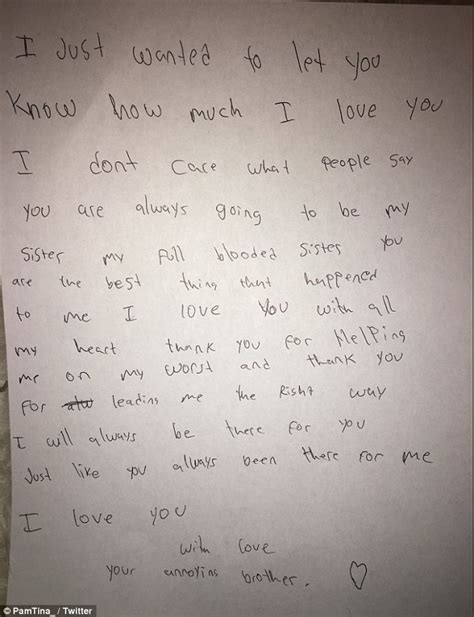 I Just wanted to let you
Know how much I love you
I dont Care what people say
you are always going to be my
Sister my full blooded Sister you
are the best thing that happened
to me I love you with all
my heart thank you for Helping
me on my worst and thank you
For leading me the Right way
I will always be there for you
Just like you always been there for me
I love you
with love
your annoying brother.
© PamTina_ / Twitter